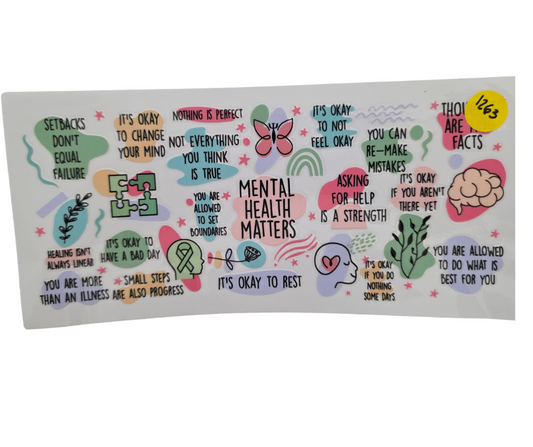 SETBACKS
DON'T
EQUAL
FAILURE
IT'S OKAY
TO CHANGE
YOUR MIND
NOTHING IS PERFECT
NOT EVERYTHING
YOU THINK
IS TRUE
IT'S OKAY
TO NOT
FEEL OKAY
YOU CAN
RE-MAKE
MISTAKES
ARE
FACTS
1263
YOU ARE
ALLOWED
TO SET
BOUNDARIES
MENTAL
HEALTH
MATTERS
ASKING
FOR HELP
IS A STRENGTH
IT'S OKAY
IF YOU AREN'T
THERE YET
HEALING ISN'T
ALWAYS LINEAR
IT'S OKAY TO
HAVE A BAD DAY
YOU ARE MORE
THAN AN ILLNESS
SMALL STEPS
ARE ALSO PROGRESS
IT'S OKAY TO REST
IT'S OKAY
IF YOU DO
NOTHING
SOME DAYS
YOU ARE ALLOWED
TO DO WHAT IS
BEST FOR YOU